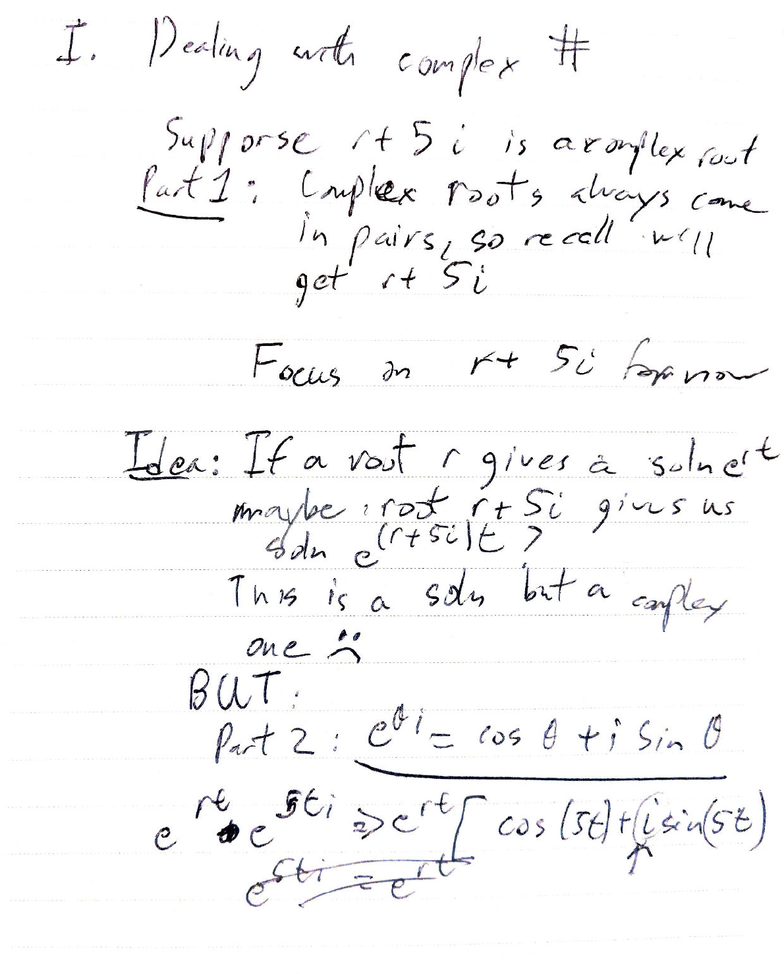 I. Dealing with complex #
Supporse r+5i is a complex root
Part 1: Complex roots always come
in pairs, so recall will
get r+ 5i
Focus on r+ 5i for now
Idea: If a root r gives a soln e^{rt}
maybe root r+5i gives us
soln e^{(r+5i)t} ?
This is a soln but a complex
one ☹
BUT:
Part 2: e^{θi} = cos θ + i sin θ
e^{rt} • e^{5ti} => e^{rt} [ cos (5t) + i sin(5t)
↑
e^{5ti} = e^{rt}